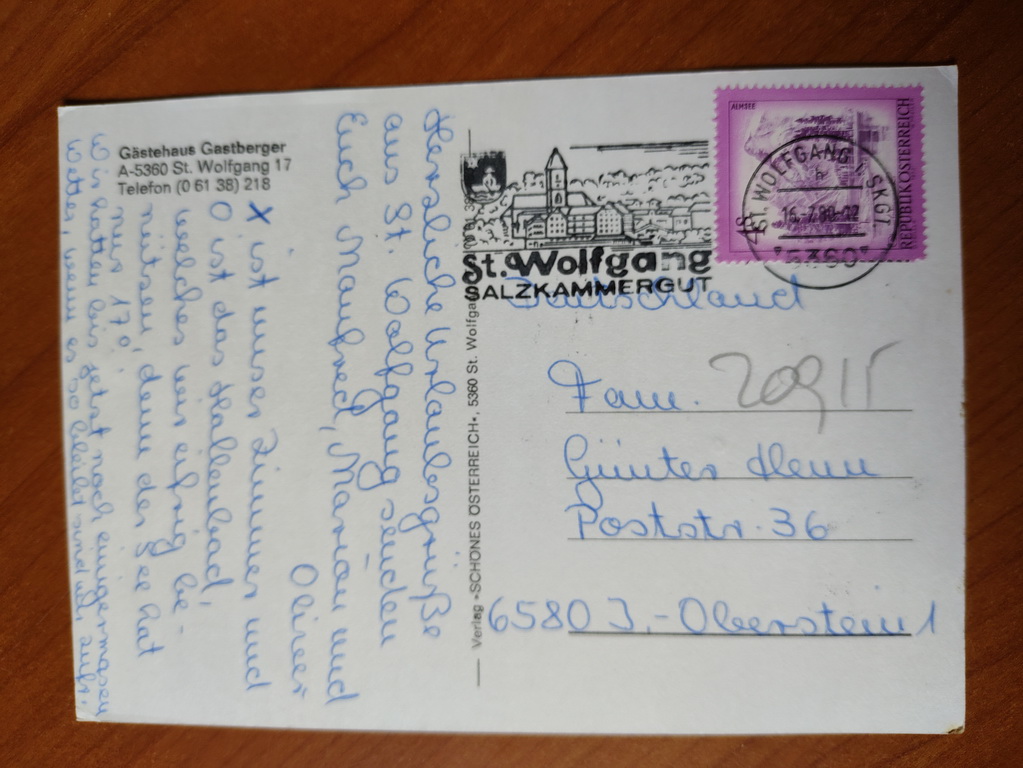 Gästehaus Gastberger
A-5360 St. Wolfgang 17
Telefon (0 61 38) 218
Herzliche Urlaubsgrüße
aus St. Wolfgang senden
Euch Manfred, Marion und
Oliver
X ist unser Zimmer und
O ist das Hallenbad,
welches wir eifrig be-
nützen, denn der See hat
nur 17°.
Wir hatten bis jetzt noch einigermasen
Wetter, wenn es so bleibt sind wir zufr.
Verlag »SCHÖNES ÖSTERREICH«, 5360 St. Wolfgang
St. Wolfgang
SALZKAMMERGUT
ALMSEE
REPUBLIK ÖSTERREICH
ST. WOLFGANG
5360
Deutschland
Fam.
20915
Günter Henn
Poststr. 36
6580 I.-Oberstein 1